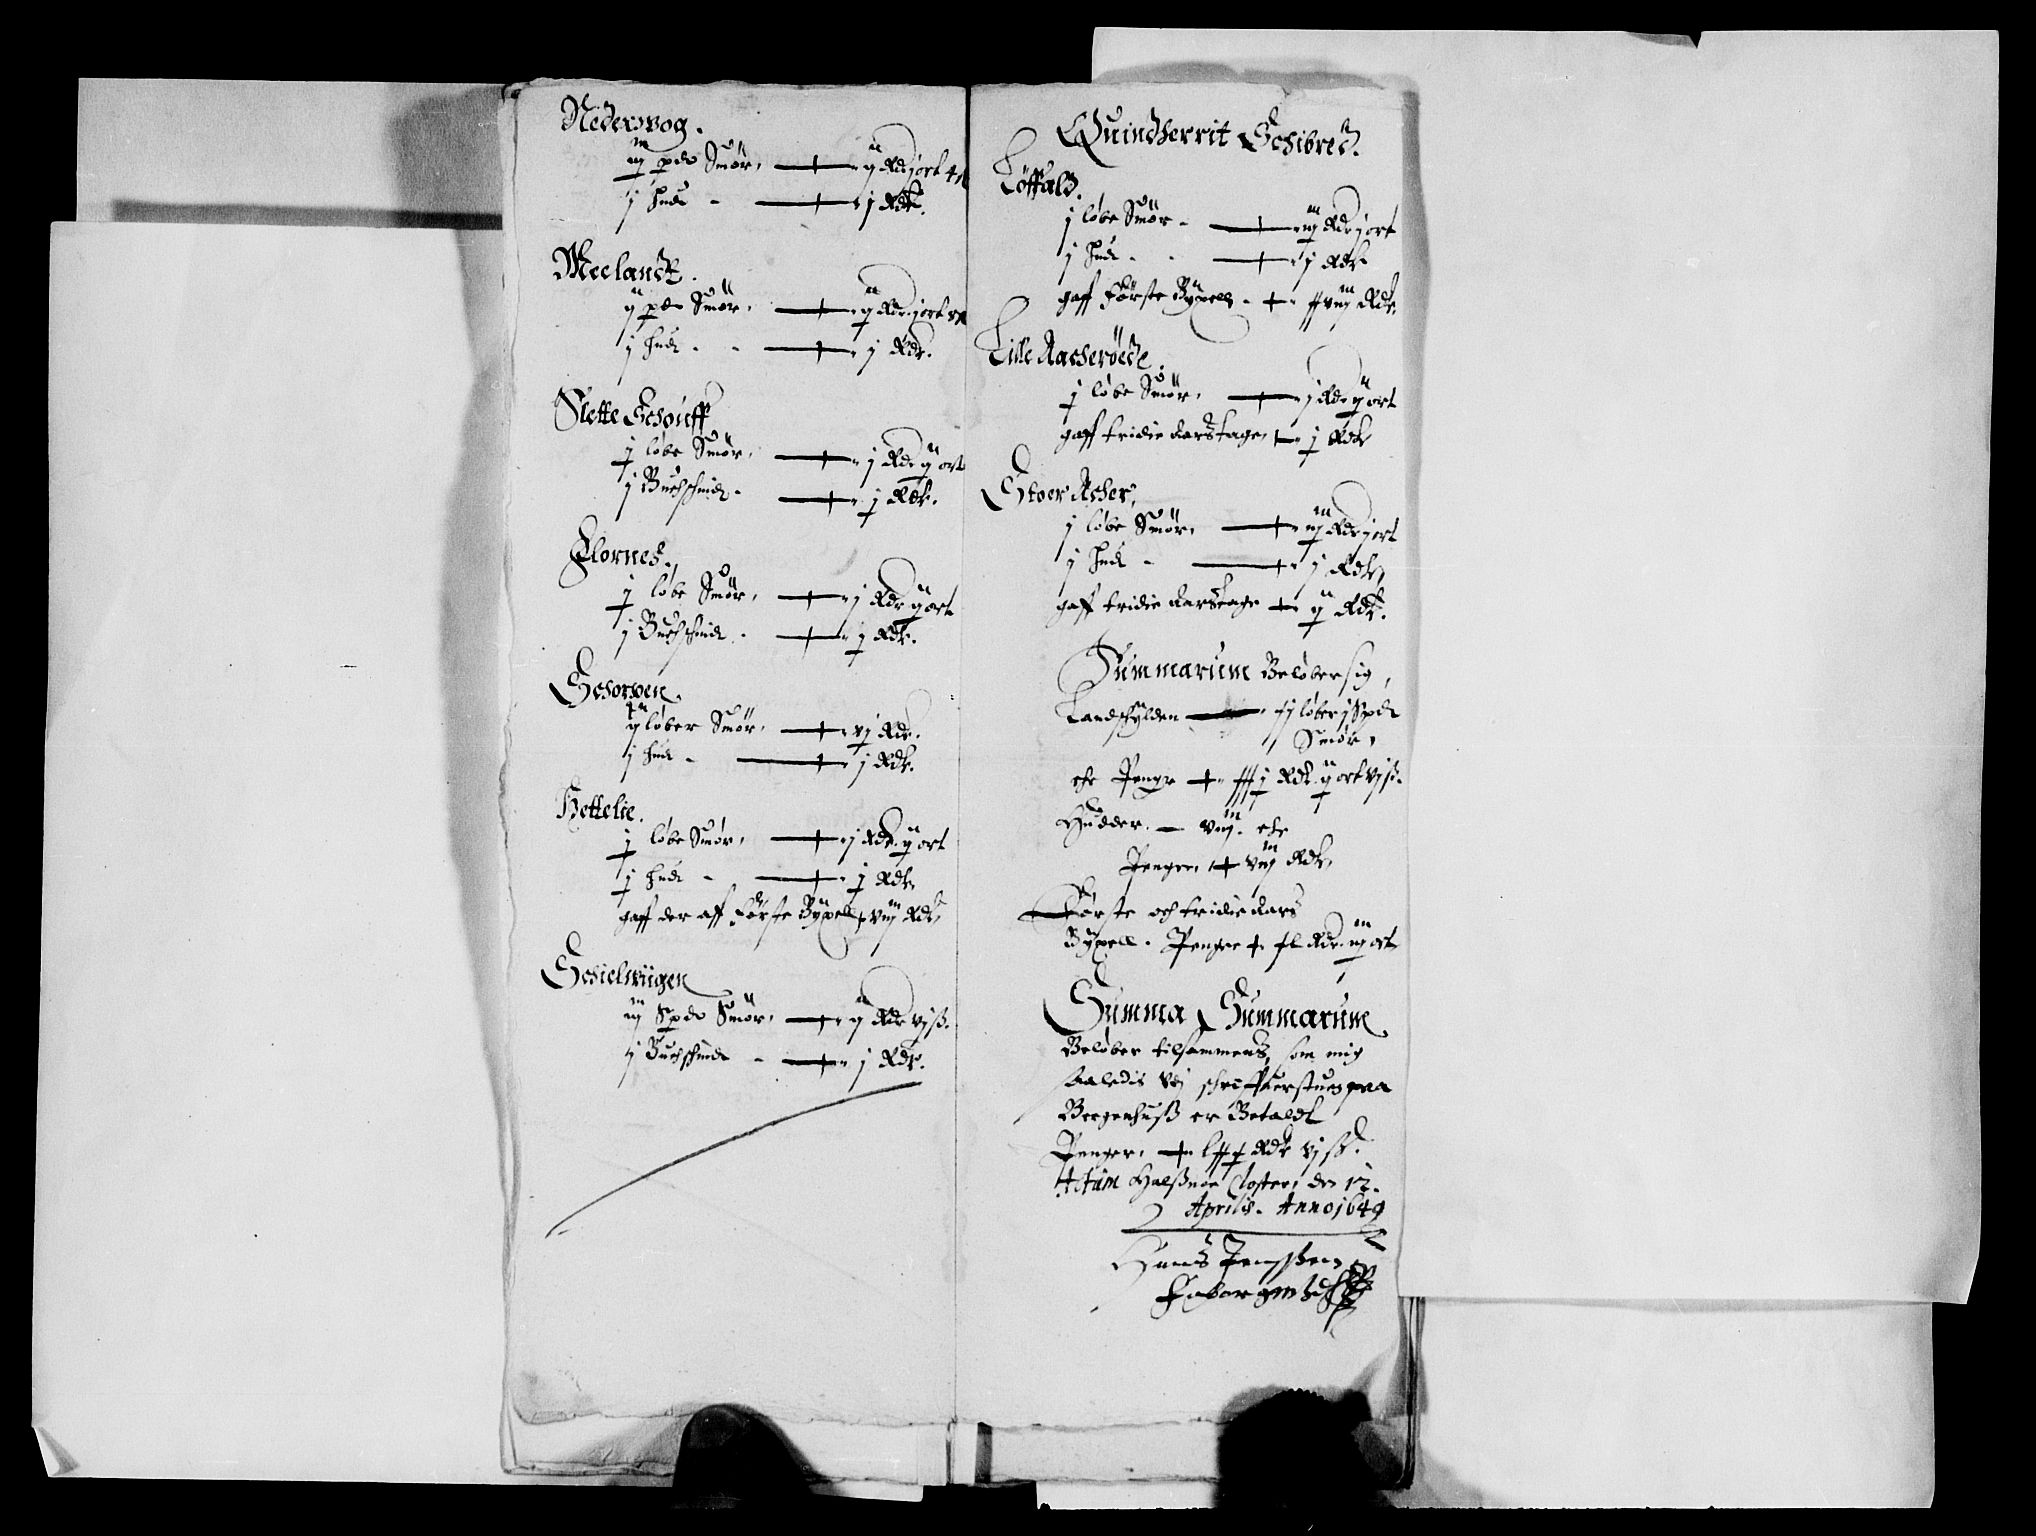 Nedervog.
iij pdr Smør, — ij Rdr j ort
j Hud - — j Rdr.
Meelandt.
ij pdr Smør, — ij Rdr j ort
j Hud - - — j Rdr.
Slette Schouff
j løbe Smør, — j Rdr ij ort
j Buchschind - — j Rdr.
Flornes.
j løbe Smør, — j Rdr ij ort
j Buchschind - — j Rdr.
Schorpen.
løber Smør, — vj Rdr.
j Hud - — j Rdr.
Hettelie.
j løbe Smør, — j Rdr ij ort
j Hud - — j Rdr.
gaff der aff Første Bÿxell viij Rdr
Schielwiigen
iij Spdr Smør, — ij Rdr vj ß.
j Buchschind - — j Rdr.
Quindherrit Schibred.
Løffald.
j løbe Smør - — iij Rdr j ort
j Hud - - — j Rdr
gaff Første Bÿxell - xviij Rdr.
Lille
j løbe Smør, — j Rdr ij ort
gaff tridie aarstage, — j Rdr
Stoer Ascher,
j løbe Smør, — iij Rdr j ort
j Hud - — j Rdr,
gaff tridie aarstage — ij Rdr.
Summarum Beløber sig,
Landschÿlden — xj løber j Spdr
Smør,
ehr Penge — xxxj Rdr. ij ort vj ß.
Hudder. — viij. ehr
Penge, — viij Rdr,
Første och tridie aars
Bÿxell. Penge — xl Rdr. iij ort
Summa Summarum
Beløber tilsammens, som mig
saaledis vdj schriffuerstuen paa
Bergenhuß er Betaldt
Penger, — lxxx Rdr vj ß.
Actum Halßnøe Closter, den 12.
Aprilis. Anno 1649
Hans Jenssen